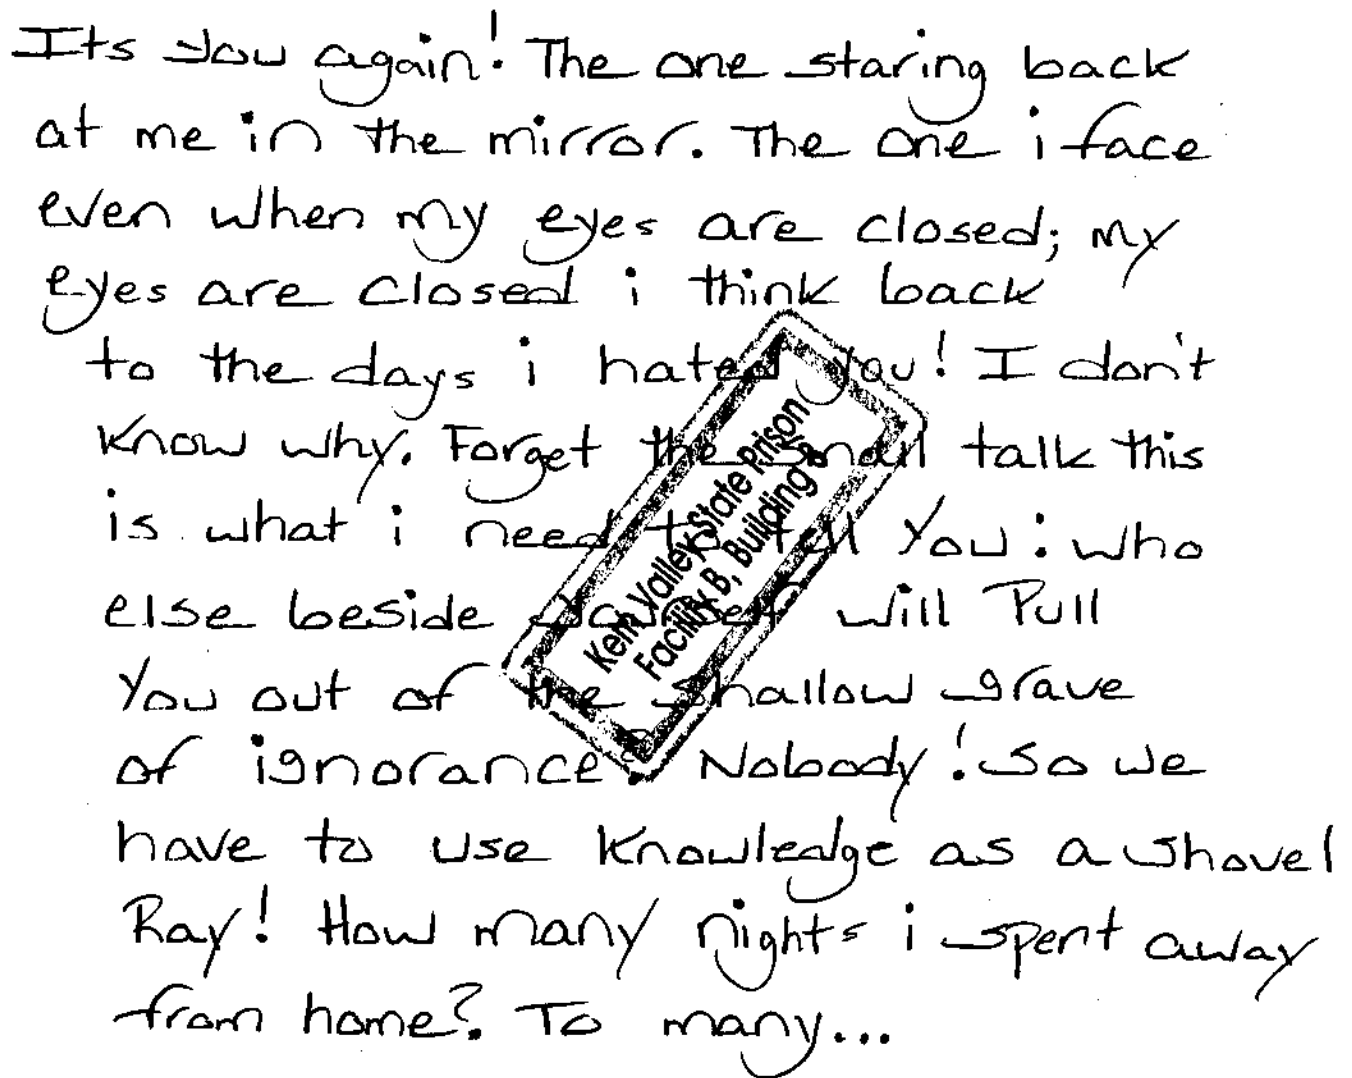 Its you again! The one staring back
at me in the mirror. The one i face
even when my eyes are closed; my
eyes are closed i think back
to the days i hated you! I don't
know why. Forget the small talk this
is what i need to tell you: who
else beside yourself will Pull
You out of the shallow grave
of ignorance? Nobody! So we
have to use knowledge as a shovel
Ray! How many nights i spent away
from home? To many...
Kern Valley State Prison
Facility B, Building